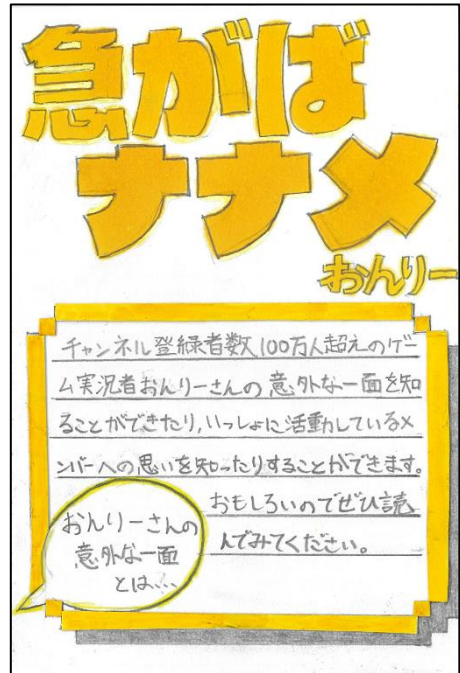 急がば
ナナメ
おんりー
チャンネル登録者数100万人超えのゲー
ム実況者おんりーさんの意外な一面を知
ることができたり,いっしょに活動しているメ
ンバーへの思いを知ったりすることができます。
おもしろいのでぜひ読
んでみてください。
おんりーさんの
意外な一面
とは…